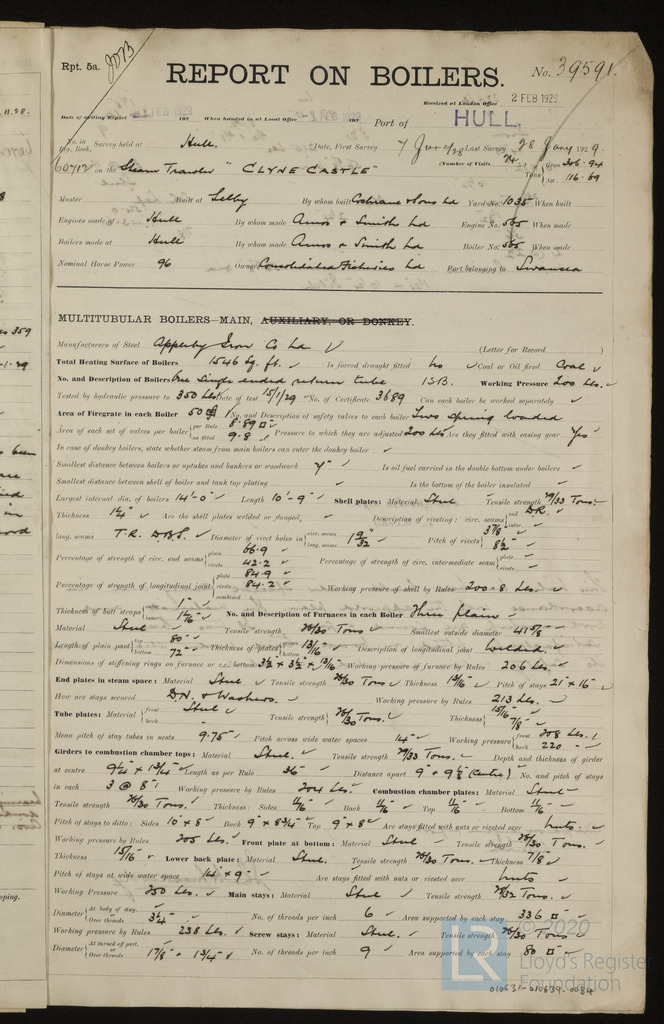 Rpt. 5a.
REPORT ON BOILERS.
No. 39591.
Received at London Office
2 FEB 1929
Date of writing Report 192 When handed in at Local Office 192 Port of HULL.
No. in Reg. Book. Survey held at Hull. Date, First Survey 7 June/28 Last Survey 28 Jany 1929.
60712 on the Steam Trawler "CLYNE CASTLE" (Number of Visits 74) Tons Gross 306.94 Net 116.69
Master Built at Selby By whom built Cochrane & Sons Ld Yard No. 1035 When built
Engines made at Hull By whom made Amos & Smith Ld Engine No. 565 When made
Boilers made at Hull By whom made Amos & Smith Ld Boiler No. 565 When made
Nominal Horse Power 96 Owners Consolidated Fisheries Ld Port belonging to Swansea
MULTITUBULAR BOILERS—MAIN, AUXILIARY, OR DONKEY.
Manufacturers of Steel Appleby Iron Co Ld (Letter for Record
Total Heating Surface of Boilers 1546 Sq. ft. Is forced draught fitted No Coal or Oil fired Coal
No. and Description of Boilers One Single ended return tube 1SB. Working Pressure 200 Lbs.
Tested by hydraulic pressure to 350 Lbs Date of test 15/1/29 No. of Certificate 3689 Can each boiler be worked separately
Area of Firegrate in each Boiler 50 No. and Description of safety valves to each boiler Two Spring loaded
Area of each set of valves per boiler per Rule 8.89 as fitted 9.8 Pressure to which they are adjusted 200 Lbs Are they fitted with easing gear Yes
In case of donkey boilers, state whether steam from main boilers can enter the donkey boiler
Smallest distance between boilers or uptakes and bunkers or woodwork Is oil fuel carried in the double bottom under boilers
Smallest distance between shell of boiler and tank top plating Is the bottom of the boiler insulated
Largest internal dia. of boilers 14'-0" Length 10'-9" Shell plates: Material Steel Tensile strength 29/33 Tons.
Thickness 1 1/4" Are the shell plates welded or flanged Description of riveting: circ. seams end D.R. inter.
long. seams T.R. D.B.S. Diameter of rivet holes in circ. seams long. seams 1 9/32 Pitch of rivets 3 7/8 8 1/2
Percentage of strength of circ. end seams plate 66.9 rivets 42.2 Percentage of strength of circ. intermediate seam plate rivets
Percentage of strength of longitudinal joint plate 84.9 rivets 84.2 combined Working pressure of shell by Rules 200.8 Lbs.
Thickness of butt straps outer 1" inner 1 1/16" No. and Description of Furnaces in each Boiler Three plain
Material Steel Tensile strength 26/30 Tons Smallest outside diameter 41 5/8"
Length of plain part top 80" bottom 72" Thickness of plates crown bottom 13/16" Description of longitudinal joint Welded
Dimensions of stiffening rings on furnace or c.c. bottom 3 1/2 x 3 1/2 x 13/16 Working pressure of furnace by Rules 206 Lbs.
End plates in steam space: Material Steel Tensile strength 26/30 Tons Thickness 1 3/16" Pitch of stays 21" x 16"
How are stays secured D.N. & Washers. Working pressure by Rules 213 Lbs.
Tube plates: Material front back Steel Tensile strength 26/30 Tons. Thickness 15/16" 7/8"
Mean pitch of stay tubes in nests 9.75" Pitch across wide water spaces 14" Working pressure front 208 Lbs. back 220
Girders to combustion chamber tops: Material Steel. Tensile strength 29/33 Tons. Depth and thickness of girder
at centre 9 1/4 x 1 3/4" Length as per Rule 36" Distance apart 9" & 9 1/2 (Centre) No. and pitch of stays
in each 3 @ 8" Working pressure by Rules 204 Lbs. Combustion chamber plates: Material Steel
Tensile strength 26/30 Tons. Thickness: Sides 11/16 Back 11/16 Top 11/16 Bottom 11/16
Pitch of stays to ditto: Sides 10" x 8" Back 9" x 8 3/4" Top 9" x 8" Are stays fitted with nuts or riveted over Nuts.
Working pressure by Rules 205 Lbs. Front plate at bottom: Material Steel Tensile strength 26/30 Tons.
Thickness 15/16" Lower back plate: Material Steel. Tensile strength 26/30 Tons. Thickness 7/8"
Pitch of stays at wide water space 14" x 9" Are stays fitted with nuts or riveted over Nuts
Working Pressure 250 Lbs. Main stays: Material Steel Tensile strength 28/32 Tons.
Diameter At body of stay, or Over threads 3 1/4" No. of threads per inch 6 Area supported by each stay 336
Working pressure by Rules 238 Lbs. Screw stays: Material Steel. Tensile strength 26/30 Tons
Diameter At turned off part, or Over threads 1 7/8" & 1 3/4" No. of threads per inch 9 Area supported by each stay 80
© 2020
Lloyd's Register
Foundation
LR
010631-010639-0084